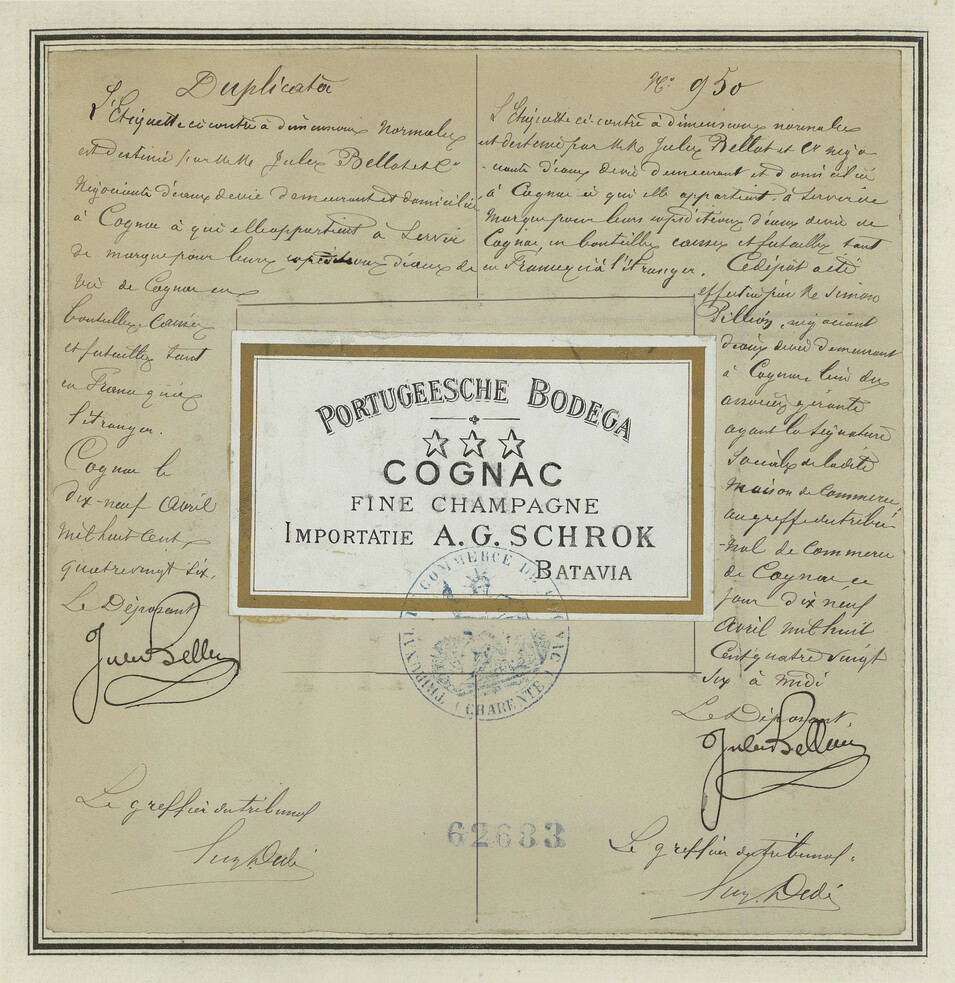 Duplicata
L'Etiquette ci contre à dimensions normales
est destinée par MM. Jules Bellot et Cie
Négociants d'eaux de vie demeurant et domiciliés
à Cognac à qui elle appartient à servir
de marque pour leurs expéditions d'eaux de
vie de Cognac en
bouteilles caisses
et futailles tant
en France qu'à
l'étranger.
Cognac le
dix-neuf Avril
mil huit cent
quatre vingt six.
Le Déposant
N° 950
L'Etiquette ci-contre à dimensions normales
est destinée par MM. Jules Bellot et Cie négo
-ciants d'eaux de vie demeurant et domiciliés
à Cognac à qui elle appartient, à servir de
marque pour leurs expéditions d'eaux de vie de
Cognac, en bouteilles caisses et futailles tant
en France qu'à l'étranger. Ce dépôt a été
effectué par Mr Simon
négociant
d'eaux de vie demeurant
à Cognac l'un des
associés gérants
ayant la signature
sociale de la dite
maison de Commerce,
au greffe du tribu
-nal de Commerce
de Cognac ce
jour dix neuf
Avril mil huit
cent quatre vingt
six à midi
Le Déposant.
PORTUGEESCHE BODEGA
COGNAC
FINE CHAMPAGNE
IMPORTATIE A. G. SCHROK
BATAVIA
TRIBUNAL DE COMMERCE DE COGNAC (CHARENTE)
Le greffier du tribunal
62683
Le greffier du tribunal.